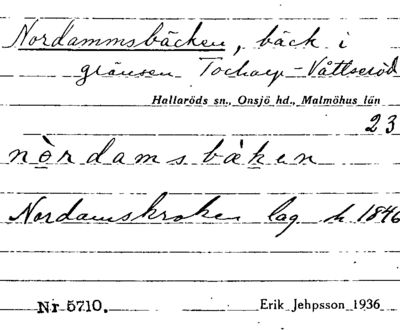 Nordammsbäcken, bäck i
gränsen Tockarp-Våttseröd
Hallaröds sn., Onsjö hd., Malmöhus län
23
nòrdamsbäken
Nordamskroken lag. h. 1846
Nr 5710. Erik Jehpsson 1936